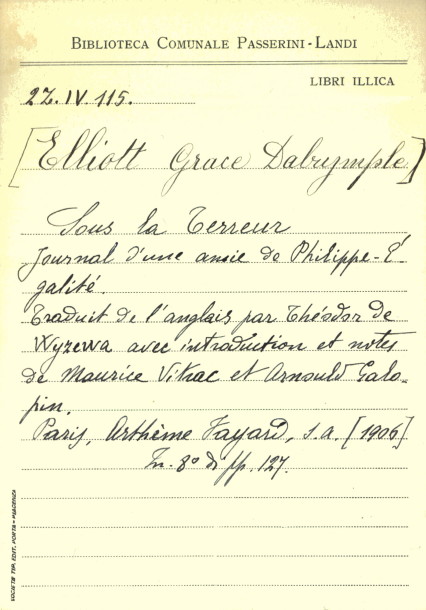 BIBLIOTECA COMUNALE PASSERINI-LANDI
LIBRI ILLICA
2Z.IV.115.
[Elliott Grace Dalrymple]
Sous la Terreur
Journal d'une amie de Philippe-É-
galité.
Traduit de l'anglais par Théodor de
Wyzewa avec introduction et notes
de Maurice Vitrac et Arnould Galo-
pin.
Paris, Arthème Fayard, s.a. [1906]
In. 8° di pp. 127.
SOCIETÀ TIP. EDIT. PORTA - PIACENZA